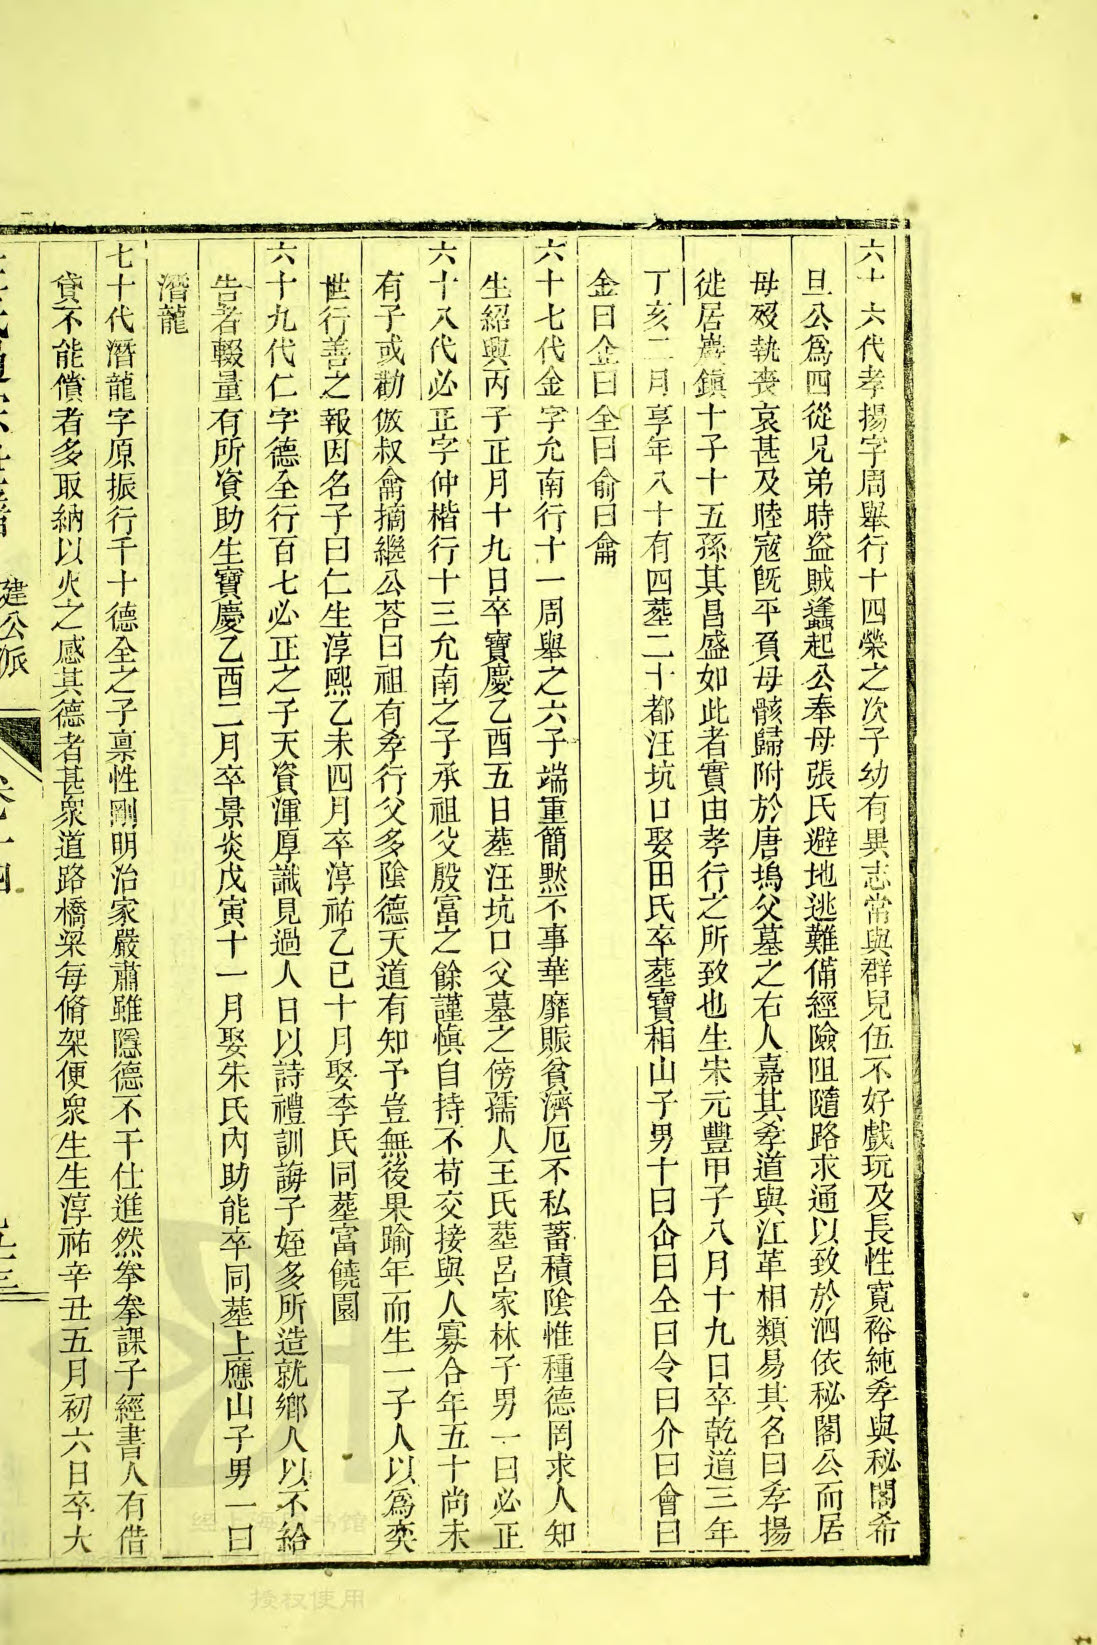 六十六代孝揚字周舉行十四榮之次子幼有異志常與群兒伍不好戲玩及長性寬裕純孝與秘閣希
旦公爲四從兄弟時盗賊蠭起公奉母張氏避地逃難備經險阻隨路求通以致於泗依秘閣公而居
母歿執喪哀甚及睦寇旣平負母骸歸附於唐塢父墓之右人嘉其孝道與江革相類易其名曰孝揚
徙居巖鎮十子十五孫其昌盛如此者實由孝行之所致也生宋元豐甲子八月十九日卒乾道三年
丁亥二月享年八十有四葬二十都汪坑口娶田氏卒葬寶相山子男十曰仚曰仝曰令曰介曰會曰
金曰企曰全曰俞曰龠
六十七代金字允南行十一周舉之六子端重簡黙不事華靡賑貧濟厄不私蓄積陰惟種德罔求人知
生紹興丙子正月十九日卒寶慶乙酉五日葬汪坑口父墓之傍孺人王氏葬呂家林子男一曰必正
六十八代必正字仲楷行十三允南之子承祖父殷富之餘謹慎自持不苟交接與人寡合年五十尚未
有子或勸倣叔龠摘繼公荅曰祖有孝行父多陰德天道有知予豈無後果踰年而生一子人以爲奕
世行善之報因名子曰仁生淳熙乙未四月卒淳祐乙巳十月娶李氏同葬富饒園
六十九代仁字德全行百七必正之子天資渾厚識見過人日以詩禮訓誨子姪多所造就鄉人以不給
告者輟量有所資助生寶慶乙酉二月卒景炎戊寅十一月娶朱氏內助能卒同葬上應山子男一曰
潛龍
七十代潛龍字原振行千十德全之子稟性剛明治家嚴肅雖隱德不干仕進然拳拳課子經書人有借
貸不能償者多取納以火之感其德者甚衆道路橋梁每脩架便衆生生淳祐辛丑五月初六日卒大
建公派
卷十四
经上海图书馆
授权使用